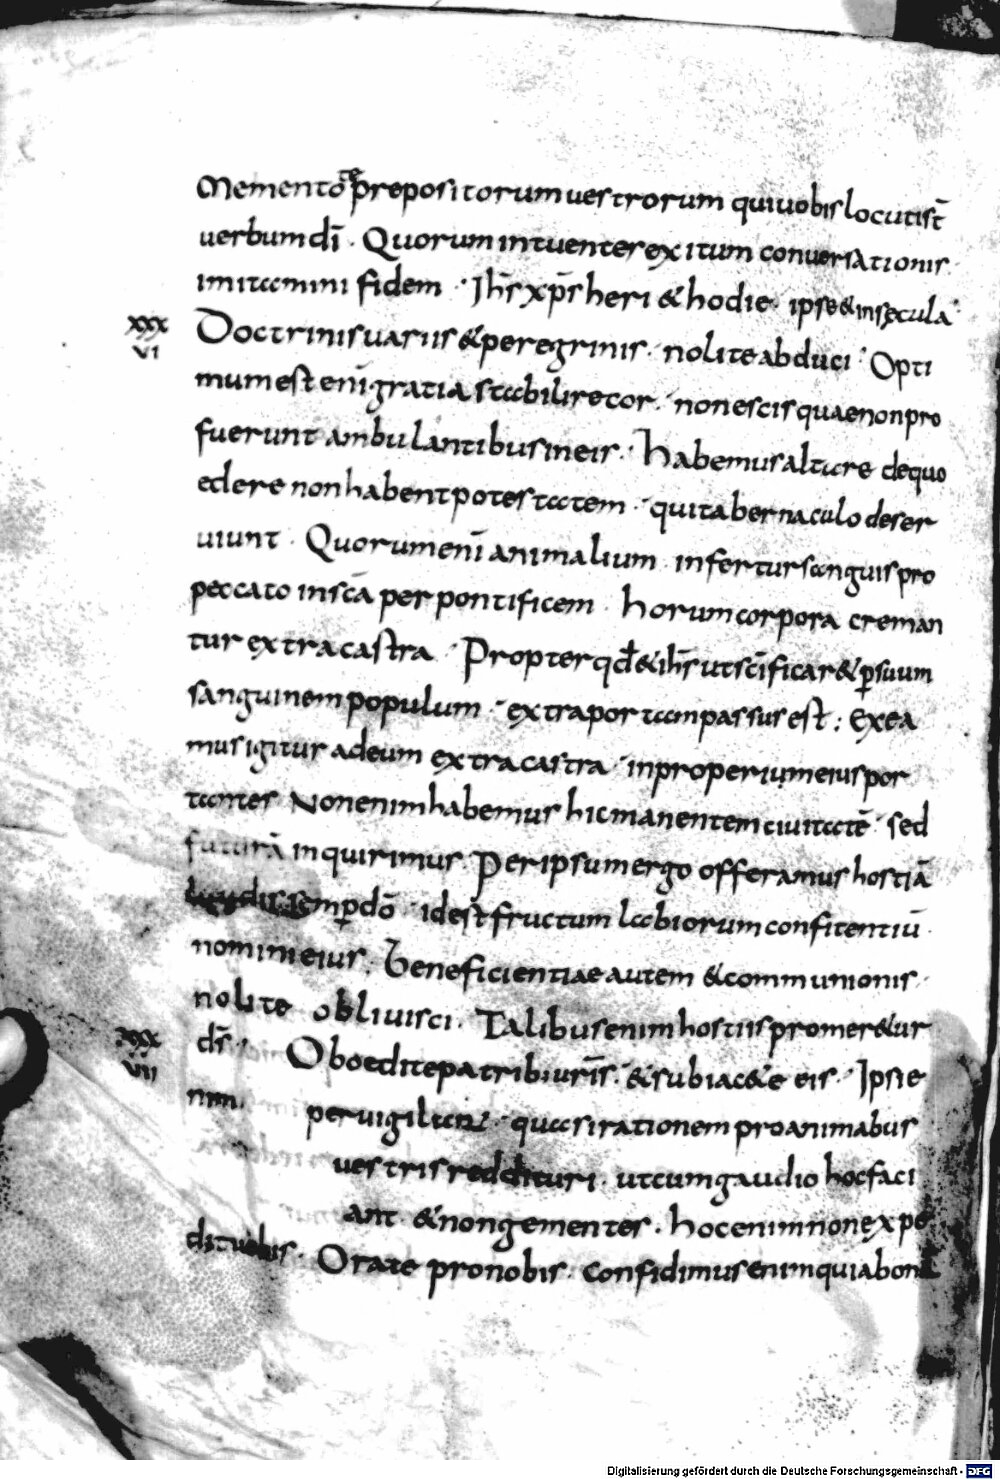 Mementote prepositorum uestrorum qui uobis locuti st̄
uerbum dī · Quorum intuenter exitum conuersationis ·
imitamini fidem · Ihs̄ xp̄s heri & hodie · ipse & in sęcula ·
XXX
VI
Doctrinis uariis & peregrinis · nolite abduci · Opti
mum est enī gratia stabilire cor · non escis quae non pro
fuerunt ambulantibus in eis · Habemus altare de quo
edere non habent potestatem · qui tabernaculo deser
uiunt · Quorum enī animalium · infertur sanguis pro
peccato in scā per pontificem · horum corpora creman
tur extra castra · Propter qđ & ihs̄ ut scīficar& ꝑ suum
sanguinem populum · extra portam passus est : Exea
mus igitur ad eum extra castra · inproperium eius por
tantes Non enim habemus hic manentem ciuitatē · sed
futurā inquirimus · Per ipsum ergo offeramus hostiā
laudis semꝑ dō · id est fructum labiorum confitentiū ·
nomini eius · Beneficientiae autem & communionis ·
nolite obliuisci · Talibus enim hostiis promer&ur
XXX
VII
ds̄ · Oboedite patrib; urīs · & subiac&e eis · Ipsi e
nim peruigilant · quasi rationem pro animabus
uestris reddituri · ut cum gaudio hoc faci
ant · & non gementes · hoc enim non expe
dit uobis · Orate pro nobis · confidimus enim quia bonā
Digitalisierung gefördert durch die Deutsche Forschungsgemeinschaft - DFG